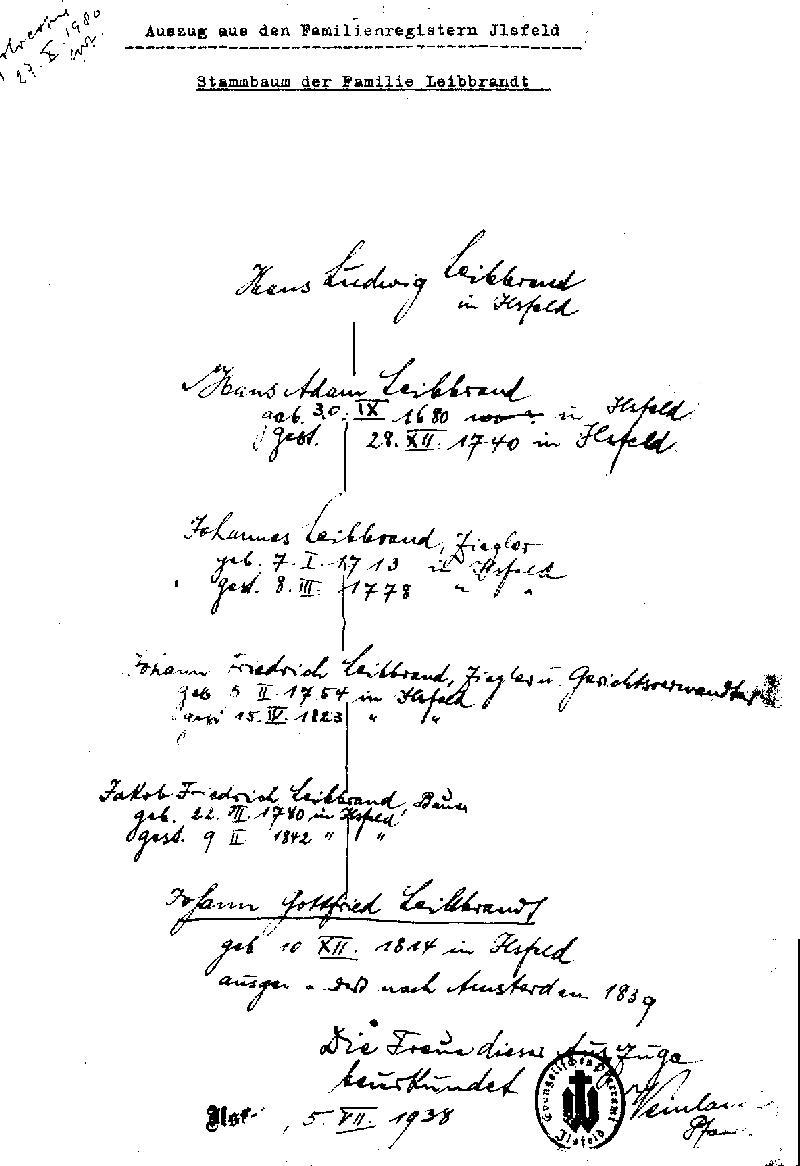 27. X. 1980
Auszug aus den Familienregistern Jlsfeld
Stammbaum der Familie Leibbrandt
Hans Ludwig Leibbrand
in Ilsfeld
Hans Adam Leibbrand
geb. 30. IX 1680 in Ilsfeld
gest. 28. XII. 1740 in Ilsfeld
Johannes Leibbrand, Ziegler
geb. 7. I. 1713 in Ilsfeld
gest. 8. III. 1778 " "
Johann Friedrich Leibbrand, Ziegler u. Gerichtsverwandter
geb 5 II. 1754 in Ilsfeld
gest 15. IV. 1823 " "
Jakob Friedrich Leibbrand, Bauer
geb. 22. III. 1780 in Ilsfeld
gest. 9 II 1842 " "
Johann Gottfried Leibbrandt
geb 10 XII. 1814 in Ilsfeld
nach Amsterdam 1839
Die Treue dieser Auszüge
beurkundet
Evangelisches Pfarramt
Ilsfeld
5. VII. 1938